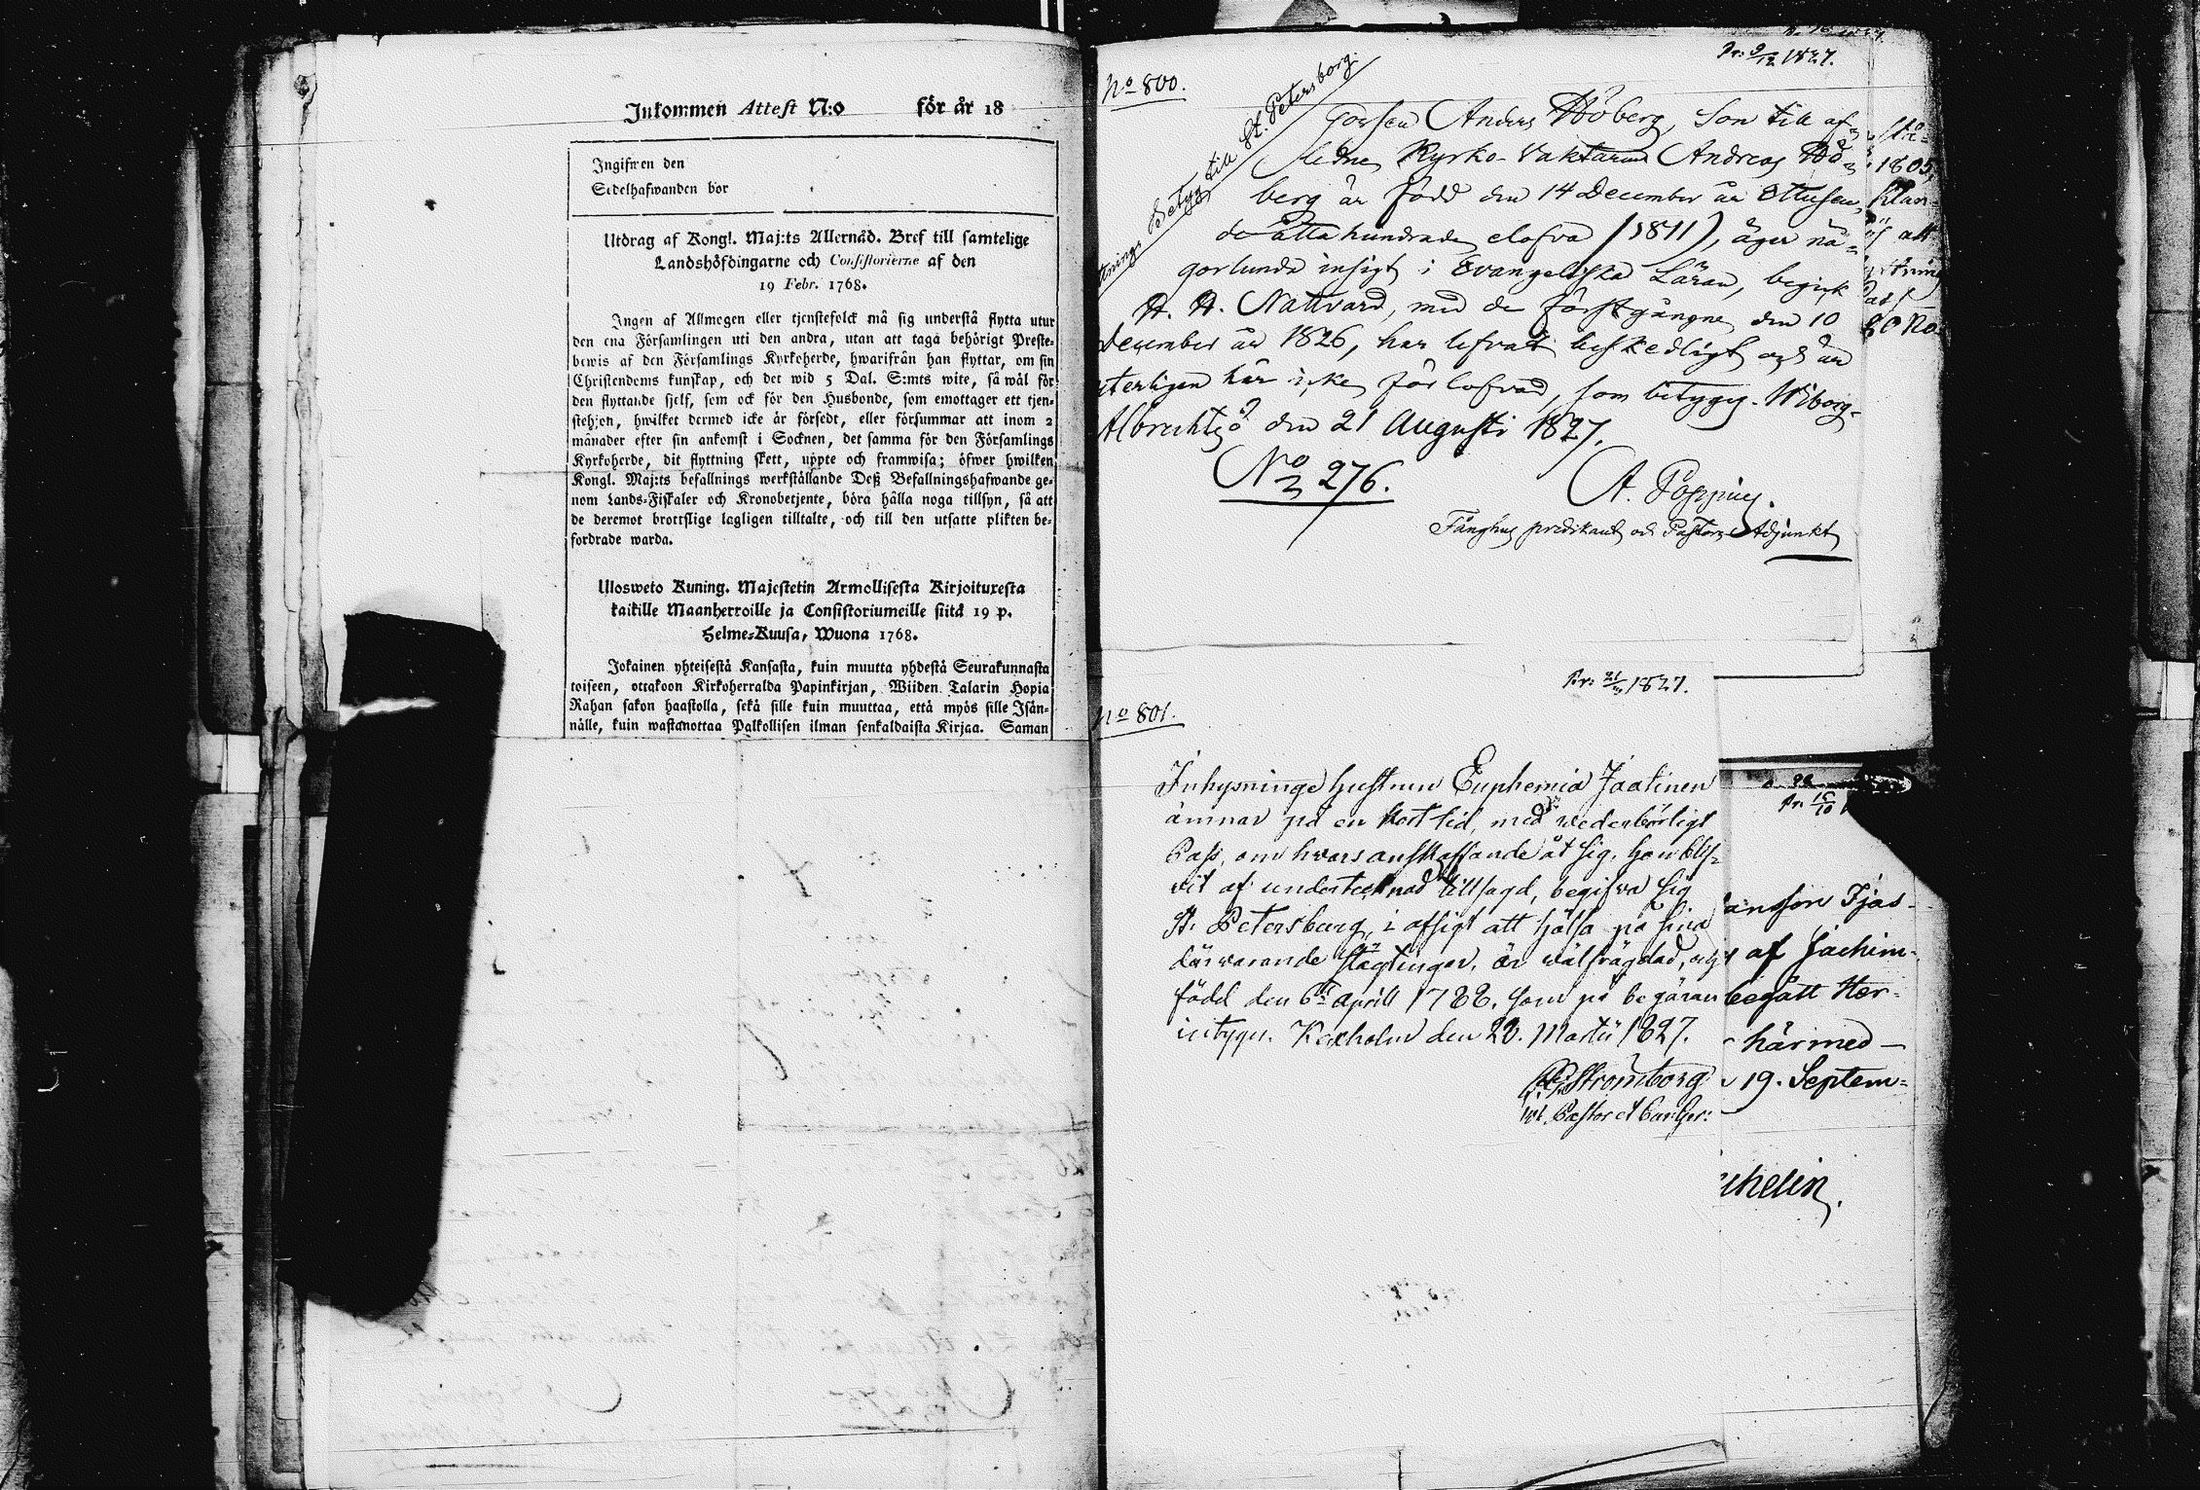 Inkommen Attest N:o för år 18
Ingifwen den
Sedelhafwanden bor
Utdrag af Kongl. Maj:ts Allernåd. Bref till samtelige
Landshöfdingarne och Consistorierne af den
19 Febr. 1768.
Ingen af Allmogen eller tjenstefolck må sig understå flytta utur
den ena Församlingen uti den andra, utan att taga behörigt Preste-
bewis af den Församlings Kyrkoherde, hwarifrån han flyttar, om sin
Christendoms kunskap, och det wid 5 Dal. S:mts wite, så wäl för
den flyttande sjelf, som ock för den Husbonde, som emottager ett tjen-
stehjon, hwilket dermed icke är försedt, eller försummar att inom 2
månader efter sin ankomst i Socknen, det samma för den Församlings
Kyrkoherde, dit flyttning skett, uppte och framwisa; öfwer hwilken
Kongl. Maj:ts befallnings werkställande Deß Befallningshafwande ge-
nom Lands-Fiskaler och Kronobetjente, böra hålla noga tillsyn, så att
de deremot brottslige lagligen tilltalte, och till den utsatte plikten be-
fordrade warda.
Ulosweto Kuning. Majestetin Armollisesta Kirjoituxesta
kaikille Maanherroille ja Consistoriumeille siitä 19 p.
Helme-Kuusa, Wuona 1768.
Jokainen yhteisestä Kansasta, kuin muutta yhdestä Seurakunnasta
toiseen, ottakoon Kirkoherralda Papinkirjan, Wiiden Talarin Hopia
Rahan sakon haastolla, sekä sille kuin muuttaa, että myös sille Isän-
nälle, kuin wastanottaa Palkollisen ilman senkaldaista Kirjaa. Saman
Pr: 9/12 1827.
No 800.
Betyg till St. Petersborg.
Gossen Anders Höberg, Son till af-
ledne Kyrko-Vaktaren Andreas Hö-
berg är född den 14 December år Ettusen-
de åtta hundrade elofva (1811), äger nå-
gorlunda insigt i Evangeliska Läran, begick
H. H. Nattvard, med de förstgångne den 10
December år 1826, har lefvat beskedligt och är
ytterligen här icke förlofvad, som betygas. Wiborg-
den 21 Augusti 1827.
No 276.
A. Poppius.
Fånghus predikant och Pastors Adjunkt
1805,
att
Pr: 21/3 1827.
No 801.
Inhysninge hustrun Euphemia Jaatinen
ämnar på en kort tid, med wederbörligt
Pass, om hvars anskaffande åt sig, hon blif-
vit af undertecknad tillsagd, begifva sig
St. Petersburg, i afsigt att hälsa på sina
därwarande slägtingar, är wälfrägdad, och
född den 6te April 1788. Som på begäran
intygas. Kexholm den 20. Martii 1827.
Strömborg
Vit. Pastor
Pr. 16/10
af Jachim-
begått Her-
härmed
19. Septem-